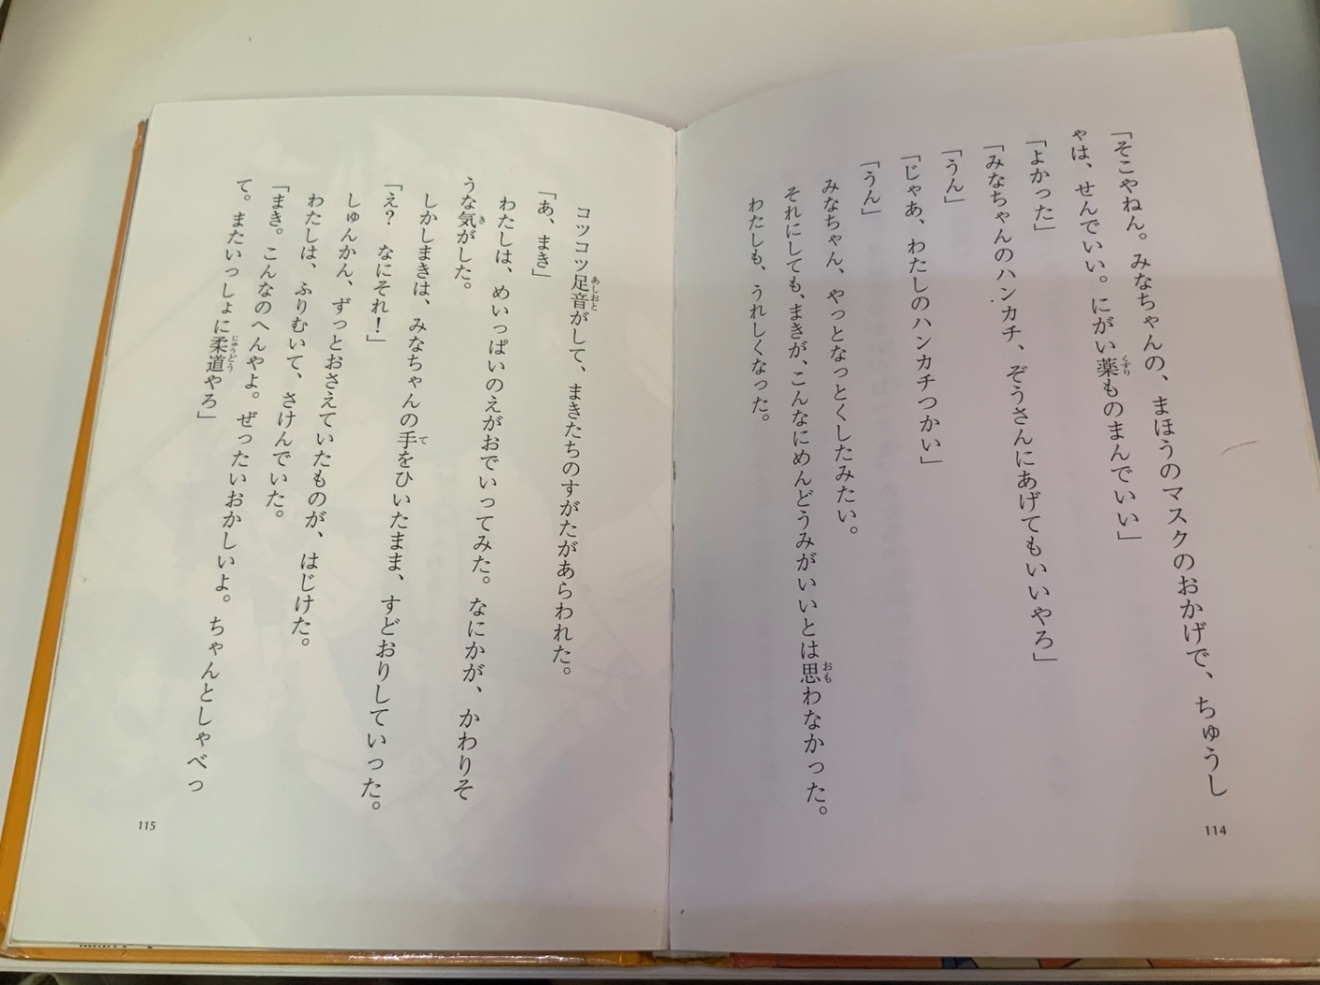 「そこやねん。みなちゃんの、まほうのマスクのおかげで、ちゅうし
ゃは、せんでいい。にがい薬ものまんでいい」
「よかった」
「みなちゃんのハンカチ、ぞうさんにあげてもいいやろ」
「うん」
「じゃあ、わたしのハンカチつかい」
「うん」
みなちゃん、やっとなっとくしたみたい。
それにしても、まきが、こんなにめんどうみがいいとは思わなかった。
わたしも、うれしくなった。
114
コツコツ足音がして、まきたちのすがたがあらわれた。
「あ、まき」
わたしは、めいっぱいのえがおでいってみた。なにかが、かわりそ
うな気がした。
しかしまきは、みなちゃんの手をひいたまま、すどおりしていった。
「え？　なにそれ！」
しゅんかん、ずっとおさえていたものが、はじけた。
わたしは、ふりむいて、さけんでいた。
「まき。こんなのへんやよ。ぜったいおかしいよ。ちゃんとしゃべっ
て。またいっしょに柔道やろ」
115